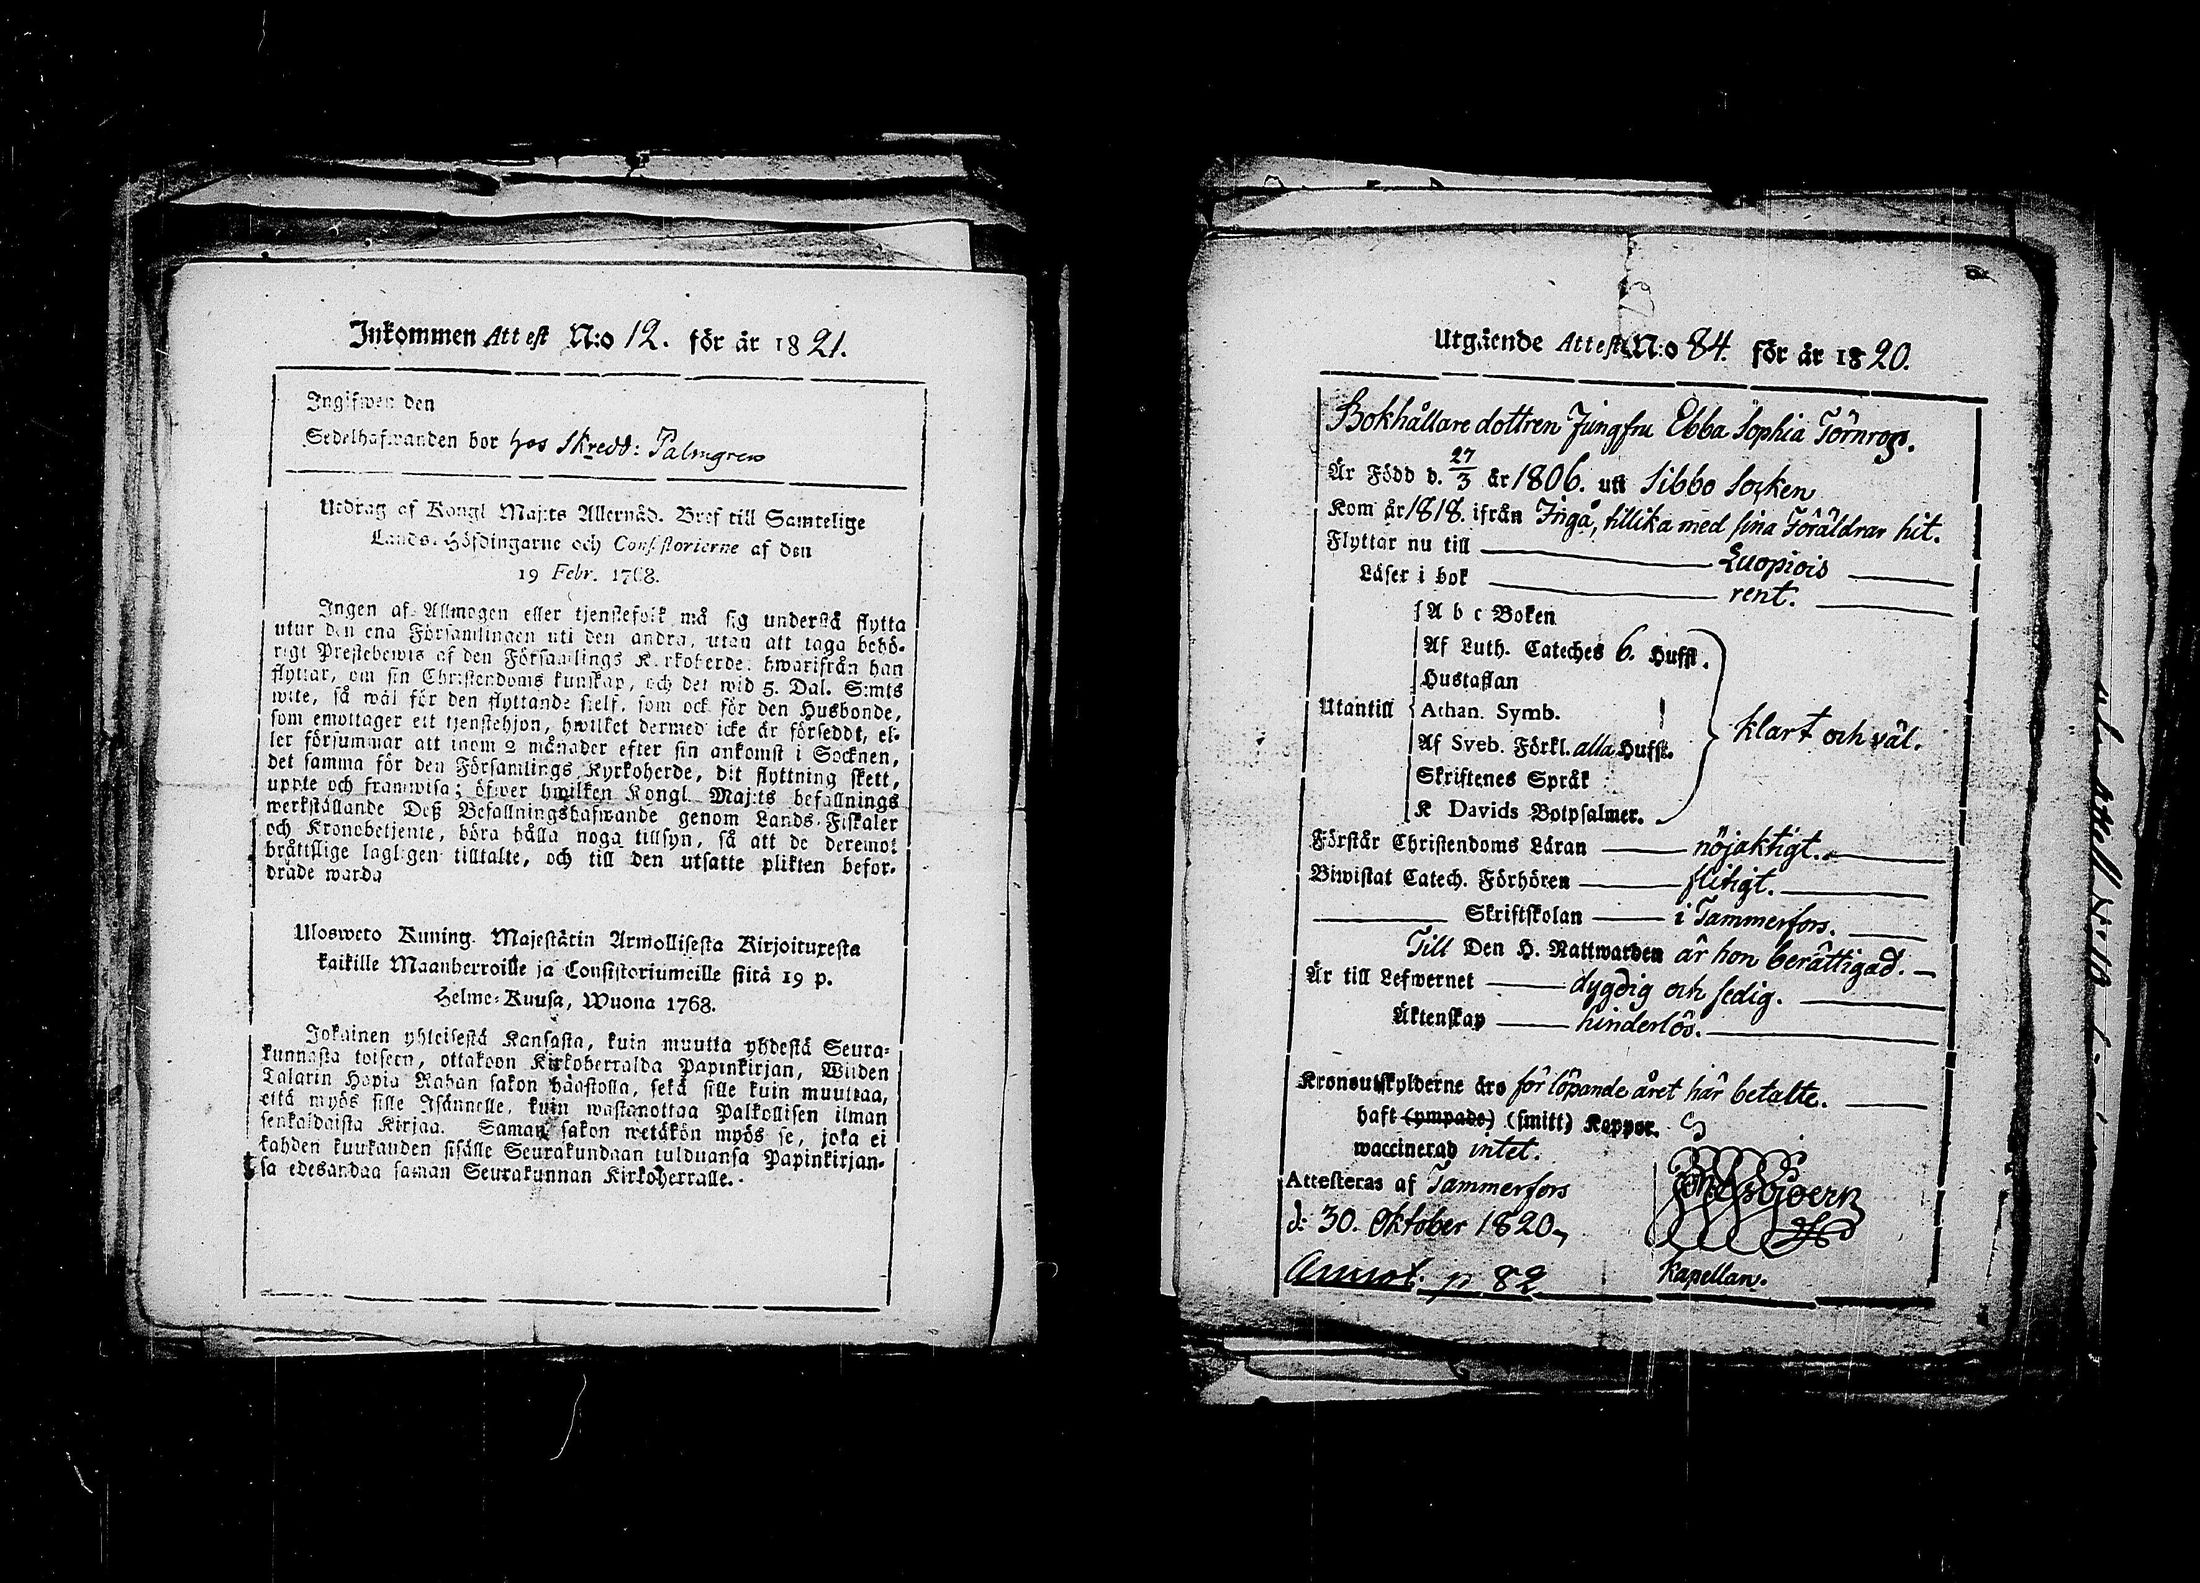 Inkommen Attest N:o 12. för år 1821.
Ingifwen den
Sedelhafwanden bor hos Skredd: Palmgren
Utdrag af Kongl Maj:ts Allernåd. Bref till Samtelige
Lands-Höfdingarne och Consistorierne af den
19 Febr. 1768.
Ingen af Allmogen eller tjenstefolk må sig understå flytta
utur den ena Församlingen uti den andra, utan att taga behö-
rigt Prestebewis af den Församlings Kyrkoherde, hwarifrån han
flyttar, om sin Christendoms kunskap, och det wid 5. Dal. S:mts
wite, så wäl för den flyttande sielf, som ock för den Husbonde,
som emottager ett tjenstehjon, hwilket dermed icke är försedt, el-
ler försummar att inom 2 månader efter sin ankomst i Socknen,
det samma för den Församlings Kyrkoherde, dit flyttning skett,
uppte och framwisa; öfwer hwilken Kongl. Maj:ts befallnings
werkställande Deß Befallningshafwande genom Lands-Fiskaler
och Kronobetjente, böra hålla noga tillsyn, så att de deremot
bråttslige lagligen tilltalte, och till den utsatte plikten befor-
drade warda
Ulosweto Kuning. Majestätin Armollisesta Kirjoituxesta
kaikille Maanherroille ja Consistoriumeille siitä 19 p.
Helme-Kuusa, Wuona 1768.
Jokainen yhteisestä Kansasta, kuin muutta yhdestä Seura-
kunnasta toiseen, ottakoon Kirkoherralda Papinkirjan, Wiiden
Talarin Hopia Rahan sakon haastolla, sekä sille kuin muuttaa,
että myös sille Isännelle, kuin wastanottaa Palkollisen ilman
senkaldaista Kirjaa. Saman sakon wetäkön myös se, joka ei
kahden kuukauden sisälle Seurakundaan tulduansa Papinkirjan-
sa edesandaa saman Seurakunnan Kirkoherralle.
Utgående Attest N:o 84. för år 1820.
Bokhållare dottren Jungfru Ebba Sophia Törnros.
Är Född d. 27/3 år 1806. uti Sibbo Socken
Kom år 1818. ifrån Ingå, tillika med sina Föräldrar hit.
Flyttar nu till Luopiois
Läser i bok rent.
A b c Boken
Af Luth. Cateches 6. Hufst.
Hustaflan
Utantill Athan. Symb. klart och väl.
Af Sveb. Förkl. alla Hufst.
Skriftenes Språk
K Davids Botpsalmer.
Förstår Christendoms Läran nöjaktigt.
Biwistat Catech. Förhören flitigt.
Skriftskolan i Tammerfors.
Till Den H. Nattwarden är hon berättigad.
Är till Lefwernet dygdig och sedig.
Äktenskap hinderlös.
Kronoutskylderne äro för löpande året här betalte.
haft (ympade) (smitt) Koppor.
waccinerad intet.
Attesteras af Tammerfors
d: 30. Oktober 1820
Kapellan.
Annot. p 82